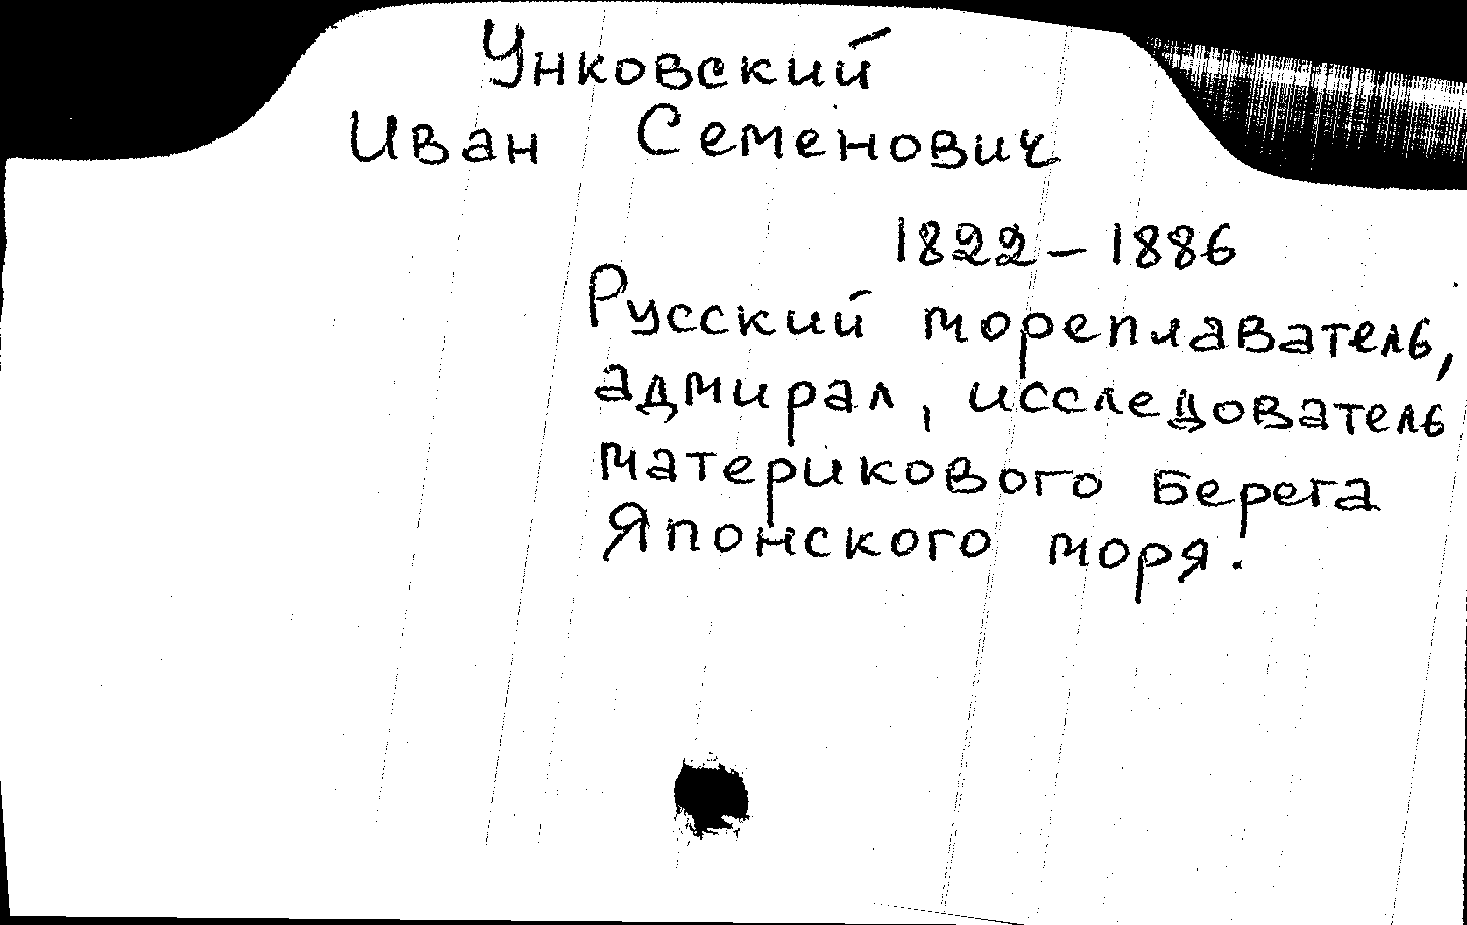 Унковский
Иван Семенович
1822–1886
Русский мореплаватель,
адмирал, исследователь
материкового берега
Японского моря.